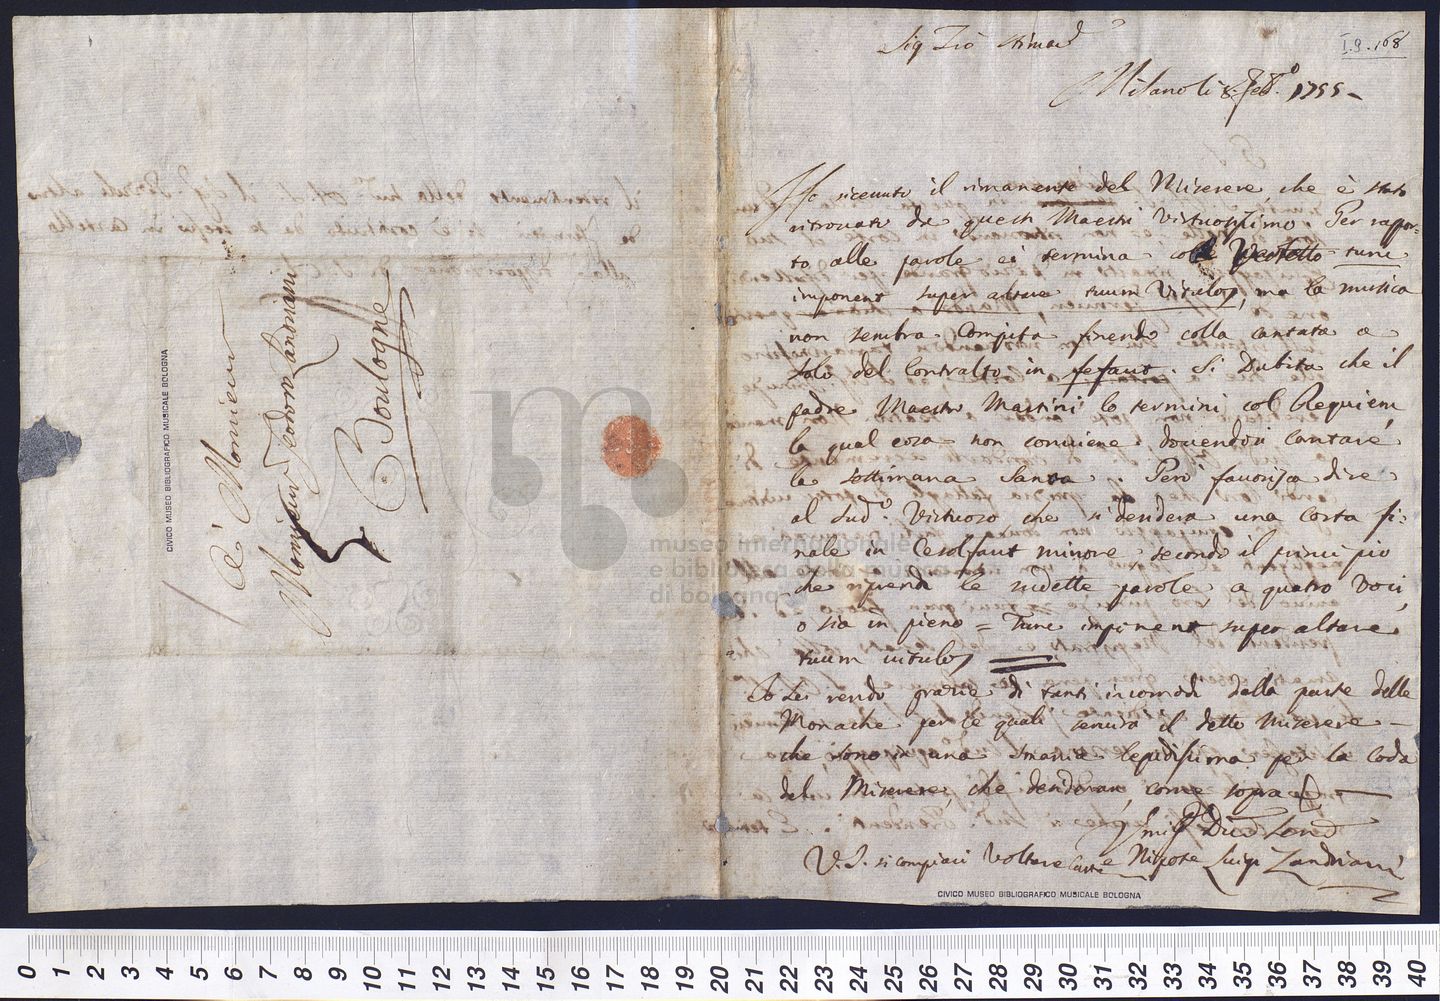 A Monsieur
Monsieur
Boulogne
CIVICO MUSEO BIBLIOGRAFICO MUSICALE BOLOGNA
museo internazionale
e biblioteca della musica
di bologna
I.9.168
Sig Zio Stimad
Milano li 8 Feb.o 1755
Ho riceuuto il rimanente del Miserere, che è stato
ritrovato da questi Maestri Virtuosissimo. Per rappor-
to alle parole ei termina colle Versetto tunc
imponent super altare tuum Vitulos, ma la musica
non sembra Compita finendo colla cantata a
Solo del Contralto in fefaut. Si Dubita che il
padre Maestro Martini lo termini col Requiem
la qual cosa non conviene, douendosi Cantare
la Settimana Santa. Però fauorisca dire
al Sud.o Virtuoso che si desidera una Corta fi-
nale in Cesolfaut minore, secondo il principio
che riprenda le sudette parole, a quatro Voci
o sia in pieno = Tunc imponent super altare
tuum uitulos
Io Le rendo grazie di tanti incomodi dalla parte delle
Monache per le quali il detto Miserere
che sono in una Smania lepidissima per la Coda
del Miserere, che desiderano come sopra
V.S. si compiaci Voltare Carta
Nipote Luigi Zandriani
CIVICO MUSEO BIBLIOGRAFICO MUSICALE BOLOGNA
0 1 2 3 4 5 6 7 8 9 10 11 12 13 14 15 16 17 18 19 20 21 22 23 24 25 26 27 28 29 30 31 32 33 34 35 36 37 38 39 40